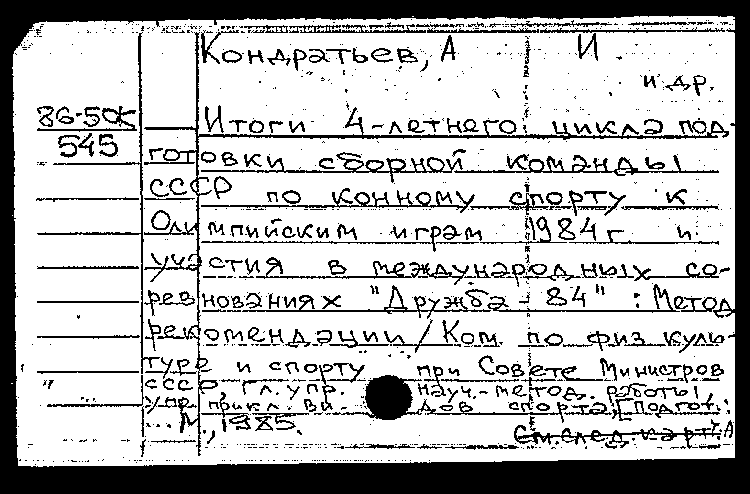 Кондратьев, А И.
и др.
86-5 ОК
545
Итоги 4-летнего цикла под-
готовки сборной команды
СССР по конному спорту к
Олимпийским играм 1984 г и
участия в международных со-
ревнованиях "Дружба - 84" : Метод
рекомендации / Ком. по физ куль-
туре и спорту при Совете Министров
СССР, Гл. упр. науч.-метод. работы,
упр. прикл. ви- дов спорта; [Подгот.:
... М., 1985.
См. след. карт. А